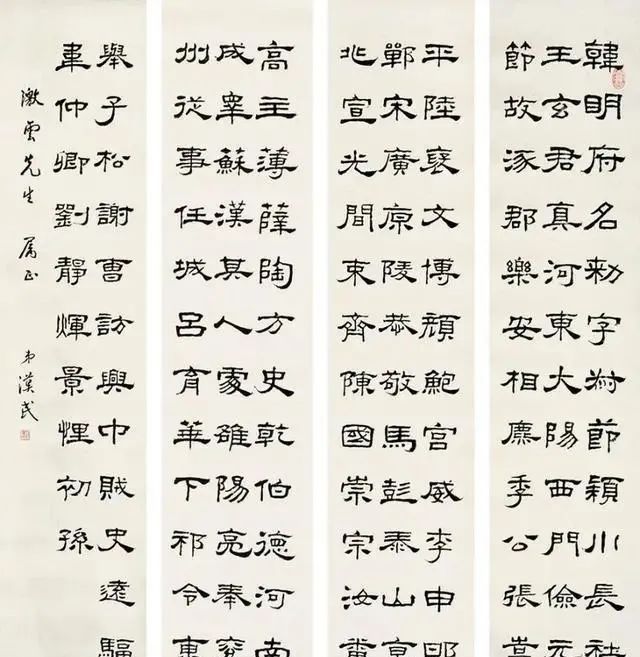 韓明府名勑字叔節穎川長社
王玄君真河東大陽西門儉元
節故涿郡樂安相麃季公張嵩
平陸襃文博顏鮑宮威李申邯
鄲宋廣原陵恭敬馬彭泰山
北宣光間束齊陳國崇宗汝
高主薄薛陶方史乾伯德河南
成睪蘇漢其人處雒陽亮奉兗
州從事任城呂育華下邳令東
舉子松謝曹訪興中賊史遠驅
韋仲卿劉靜煇景悝初孫
澂雲先生屬正 弟漢民